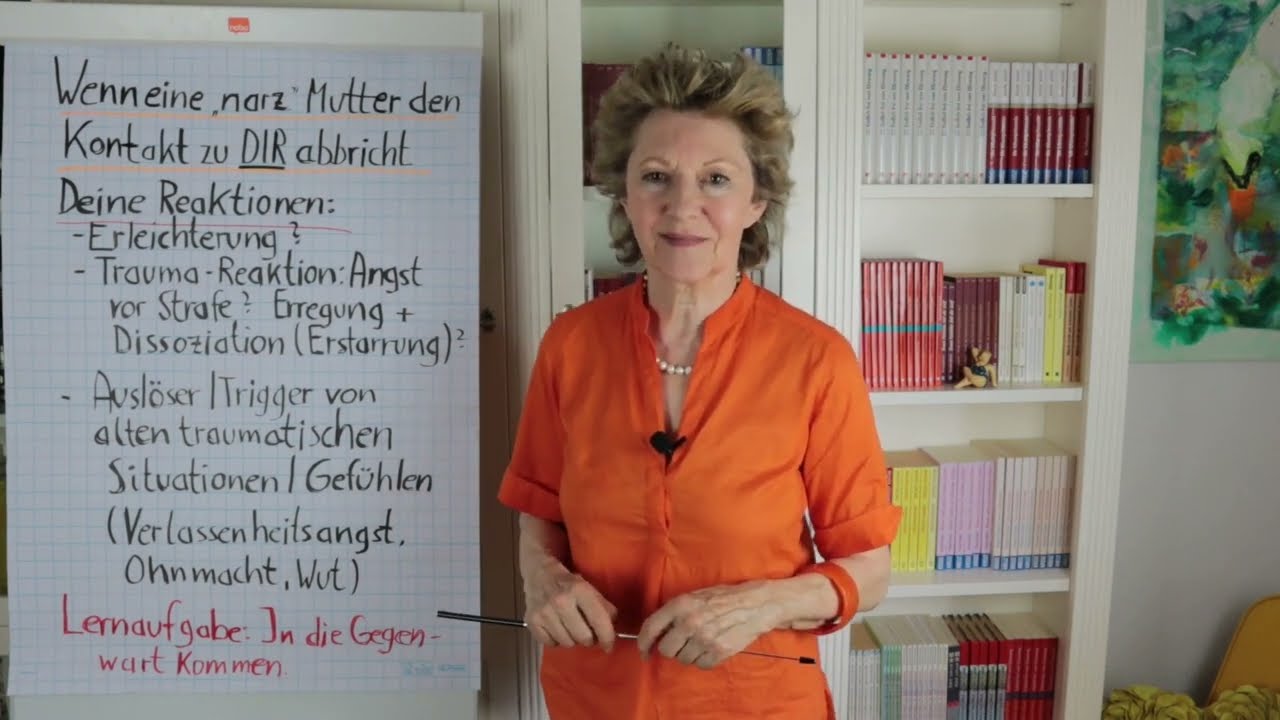 nobo
Wenn eine „narz" Mutter den
Kontakt zu DIR abbricht
Deine Reaktionen:
- Erleichterung?
- Trauma-Reaktion: Angst
vor Strafe? Erregung +
Dissoziation (Erstarrung)?
- Auslöser / Trigger von
alten traumatischen
Situationen / Gefühlen
(Verlassenheitsangst,
Ohnmacht, Wut)
Lernaufgabe: In die Gegen-
wart Kommen.